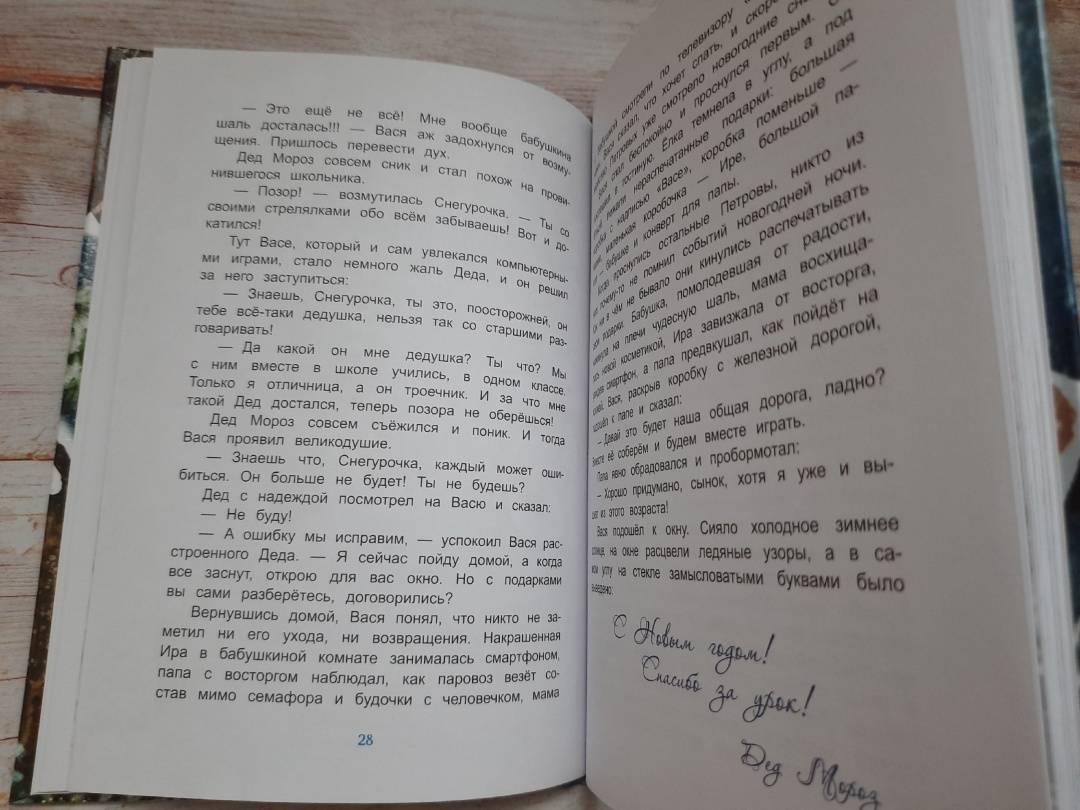 — Это ещё не всё! Мне вообще бабушкина
шаль досталась!!! — Вася аж задохнулся от возму-
щения. Пришлось перевести дух.
Дед Мороз совсем сник и стал похож на прови-
нившегося школьника.
— Позор! — возмутилась Снегурочка. — Ты со
своими стрелялками обо всём забываешь! Вот и до-
катился!
Тут Васе, который и сам увлекался компьютерны-
ми играми, стало немного жаль Деда, и он решил
за него заступиться:
— Знаешь, Снегурочка, ты это, поосторожней, он
тебе всё-таки дедушка, нельзя так со старшими раз-
говаривать!
— Да какой он мне дедушка? Ты что? Мы
с ним вместе в школе учились, в одном классе.
Только я отличница, а он троечник. И за что мне
такой Дед достался, теперь позора не оберёшься!
Дед Мороз совсем съёжился и поник. И тогда
Вася проявил великодушие.
— Знаешь что, Снегурочка, каждый может оши-
биться. Он больше не будет! Ты не будешь?
Дед с надеждой посмотрел на Васю и сказал:
— Не буду!
— А ошибку мы исправим, — успокоил Вася рас-
строенного Деда. — Я сейчас пойду домой, а когда
все заснут, открою для вас окно. Но с подарками
вы сами разберётесь, договорились?
Вернувшись домой, Вася понял, что никто не за-
метил ни его ухода, ни возвращения. Накрашенная
Ира в бабушкиной комнате занималась смартфоном,
папа с восторгом наблюдал, как паровоз везёт со-
став мимо семафора и будочки с человечком, мама
28
смотрели по телевизору
Вася сказал, что хочет спать, и скоро
Петровых уже смотрело новогодние
спал беспокойно и проснулся первым.
в гостиную. Ёлка темнела в углу, а под
нераспечатанные подарки: большая
с надписью «Васе», коробка поменьше —
маленькая коробочка — Ире, большой па-
бабушке и конверт для папы.
Когда проснулись остальные Петровы, никто из
почему-то не помнил событий новогодней ночи.
Как ни в чём не бывало они кинулись распечатывать
свои подарки. Бабушка, помолодевшая от радости,
накинула на плечи чудесную шаль, мама восхища-
лась новой косметикой, Ира завизжала от восторга,
увидев смартфон, а папа предвкушал, как пойдёт на
Вася, раскрыв коробку с железной дорогой,
подошёл к папе и сказал:
— Давай это будет наша общая дорога, ладно?
Вместе её соберём и будем вместе играть.
Папа явно обрадовался и пробормотал:
— Хорошо придумано, сынок, хотя я уже и вы-
шел из этого возраста!
Вася подошёл к окну. Сияло холодное зимнее
солнце, на окне расцвели ледяные узоры, а в са-
мом углу на стекле замысловатыми буквами было
выведено:
С Новым годом!
Спасибо за урок!
Дед Мороз